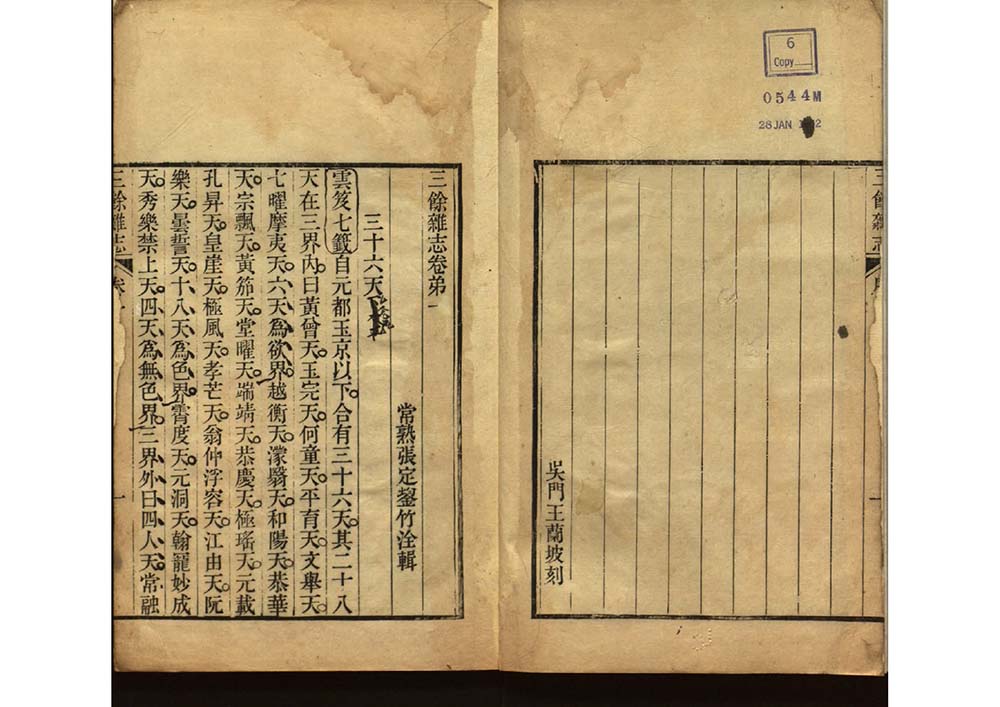 6
Copy
0544M
28 JAN
三餘雜志
一
吳門王蘭坡刻
三餘雜志卷弟一
常熟張定鋆竹洤輯
三十六天
雲笈七籤自元都玉京以下合有三十六天其二十八
天在三界內曰黃曾天玉完天何童天平育天文舉天
七曜摩夷天六天爲欲界越衡天濛翳天和陽天恭華
天宗飄天黃笳天堂曜天端靖天恭慶天極瑤天元載
孔昇天皇崖天極風天孝芒天翁仲浮容天江由天阮
樂天曇誓天十八天爲色界霄度天元洞天翰寵妙成
天秀樂禁上天四天爲無色界三界外曰四人天常融
三餘雜志
一